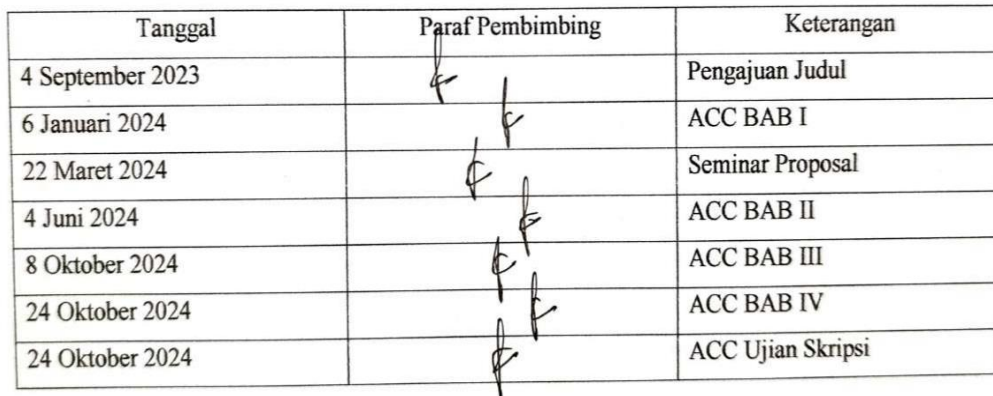 Tanggal Paraf Pembimbing Keterangan
4 September 2023 Pengajuan Judul
6 Januari 2024 ACC BAB I
22 Maret 2024 Seminar Proposal
4 Juni 2024 ACC BAB II
8 Oktober 2024 ACC BAB III
24 Oktober 2024 ACC BAB IV
24 Oktober 2024 ACC Ujian Skripsi